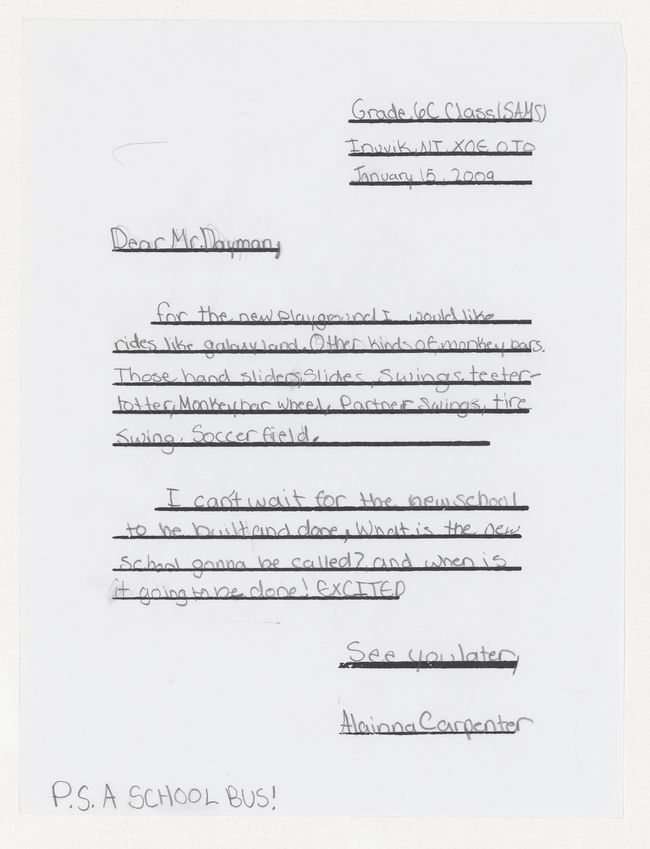 Grade 6C Class (SAMS)
Inuvik, NT. X0E 0T0
January 15, 2009
Dear Mr. Dayman,
for the new playground I would like
rides like galaxy land. Other kinds of monkey bars.
Those hand sliders, Slides, Swings, teeter-
totter, Monkey bar wheel, Partner Swings, tire
Swing. Soccer field.
I can't wait for the new school
to be built and done, What is the new
School gonna be called? and when is
it going to be done! EXCITED
See you later,
Alainna Carpenter
P.S. A SCHOOL BUS!